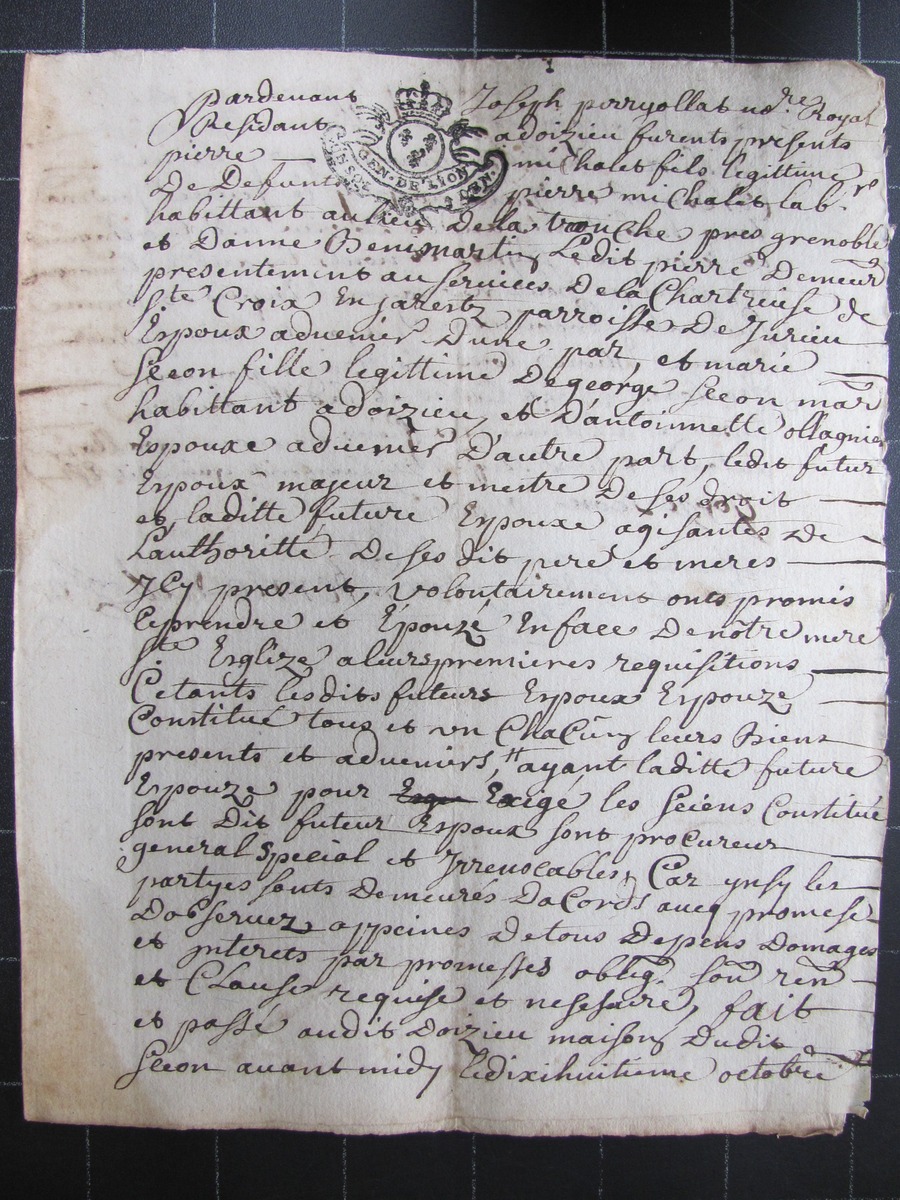 1
Pardevant Joseph perryollat no.re Royal
Residant adoizieu furents presents
pierre — michalet fils legittime
De Defunt pierre michalet lab.r
GEN. DE LION
habittant au lieu De la tronche pres grenoble
et Danne Benimartin Ledit pierre Demeur.t
presentement au services De la Chartreuse de
Ste Croix En jarestz parroisse De Jurieu
Espoux advenier Dune par, et marie
Seeon fille legittime Degeorge Seeon mar.
habittant adoizieu, et D'antoinnette ollagnier
Espouxe advenier D'autre part, ledit futur
Espoux majeur et mestre De ses droit
et laditte future Espouxe agisantes de
Lauthoritté De ses dit pere et meres
Jcy present, volontairement onts promis
Se prendre et Épouzé En face De nôtre mere
ste Esglize a leurs premieres requisitions
Cetants lesdits futeurs Espoux Espouze
Constitué tous et un Chacung leurs Biens
presents et adveniers, ayant laditte future
Espouze pour Exigé les Seiens Constitué
sont Dit futeur Espoux sont procureur
general special et Irrevocables, Car ynsy les
partyes sonts Demeurés DaCords avec promese
Dobserver appeines De tous Depens Domages
et Interets par promesses oblig. soum ren.
et Clause requise et nessesaire, fait
et passé audit Doizieu maison Dudit
Seeon avant midy Ledixihuitieme octobre